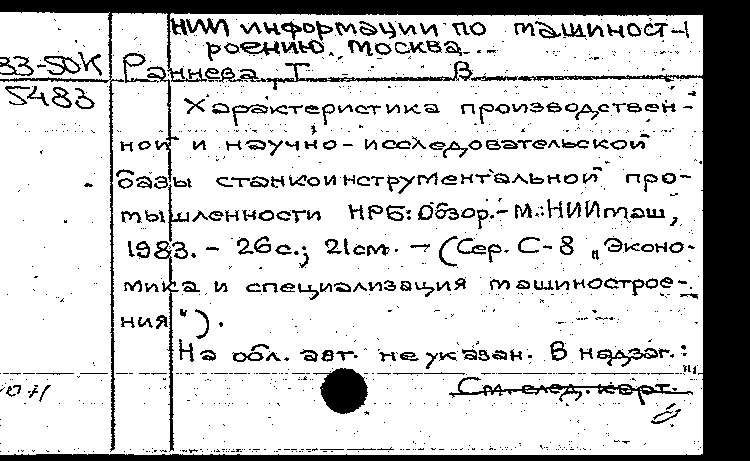 НИИ информации по машиност-
роению. Москва
83-50К Раннева Т В
5483 Характеристика производствен-
ной и научно-исследовательской
базы станкоинструментальной про-
мышленности НРБ: Обзор.-М.:НИИмаш,
1983. - 26с.; 21см. - (Сер. С-8 „Эконо-
мика и специализация машинострое-
ния").
На обл. авт. не указан. В надзаг.:
См. след. карт.